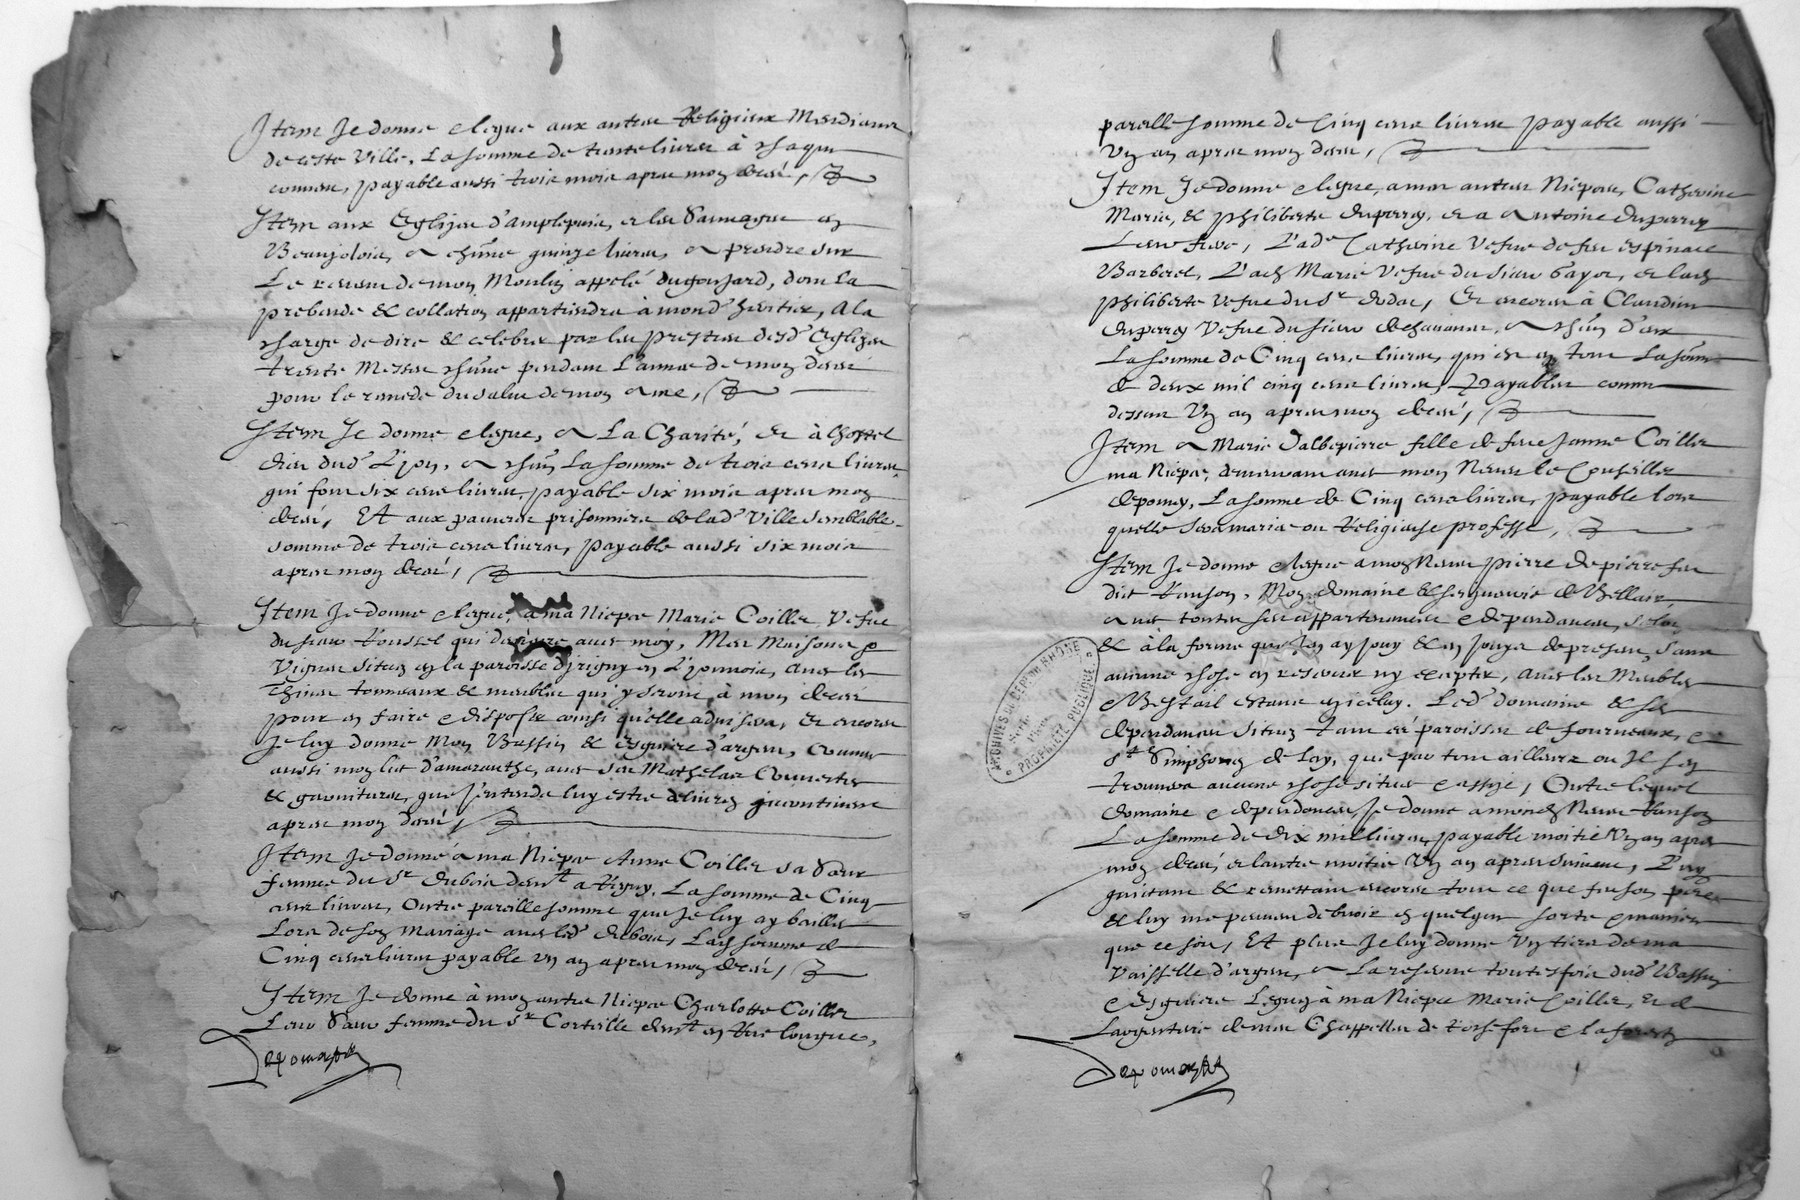 Item Je donne & legue aux autres Religieux Mendians
de ceste Ville, La somme de trente livres à chaque
convent, payable aussi trois mois apres mon decés,
Item aux Eglizes d'amplepuis, et les Sauvages en
Beaujolois, a ch'une quinze livres, a prendre sur
Le revenu de mon Moulin appelé du goujard, dont la
prebende & collation appartiendra à mond' heritier, A la
charge de dire & celebrer par les prestres desd' Eglizes
trente Messes ch'une pendant L'année de mon deces
pour le remede du salut de mon ame,
Item Je donne & legue, a La Charité, et à l'hostel
dieu dud' Lyon, a ch'un La somme de trois cens livres
qui font six cens livres, payable six mois apres mon
decés, Et aux pauvres prisonniers de lad' Ville semblable
somme de trois cens livres, payable aussi six mois
apres mon decés,
Item Je donne & legue, a ma Niepce Marie Coillet Vefve
du sieur Roussel qui demeure avec moy, Mes Maisons &
Vignes situez en la paroisse d'jrigny en Lyonnois, Avec les
thines tonneaux & meubles qui y seront à mon decés
pour en faire & disposer ainsi qu'elle advisera, Et encores
Je luy donne Mon Bassin & esguiere d'argent, Comme
aussi mon lict d'amaranthe, avec ses Mathelas Couvertes
& garnitures, que j'entends luy estre delivrez jncontinent
apres mon decés,
Item Je donne à ma Niepce Anne Coillet sa Sœur
femme du Sr dubois dem't a Regny, La somme de Cinq
cens livres, Outre pareille somme que Je luy ay baillée
Lors de son Mariage avec led' dubois, Lad' somme de
Cinq cens livres payable un an apres mon decés,
Item Je donne à mon autre Niepce Charlotte Coillet
Leur Sœur femme du Sr Corteille dem't en Rue longue,
pareille somme de Cinq cens livres payable aussi
Un an apres mon deces,
Item Je donne & legue, a mes autres Niepces, Catherine
Marie, & philiberte duperrey, et a Antoine duperrey
Leur frere, L'ad' Catherine Vefve de feu espinace
Barberet, L'ad' Marie Vefve du sieur Gayot, et lad'
philiberte vefve du Sr dodat, Et encores à Claudine
duperrey Vefve du sieur de chavanne, a ch'un d'eux
La somme de Cinq cens livres, qui est en tout La som'e
de deux mil cinq cens livres, payables comme
dessus Un an apres mon decés,
Item a Marie Dalbepierre fille de feue Jeanne Coillet
ma Niepce, demeurant avec mon Neveu le Conseiller
depomey, La somme de Cinq cens livres, payable lors
quelle sera mariée ou Religieuse professe,
Item Je donne & legue a mon Neveu pierre depierrefeu
dict Ranson, Mon domaine & seigneurie de Bellair,
avec toutes ses appartenances & dependances, selon
& à la forme que J'en ay jouy & en jouys de present, sans
aucune chose en reserver ny excepter, Avec les Meubles
& Bestail estans en iceluy. Led' domaine & ses
dependances situez tant és paroisses de fourneaux, &
St Simphorien de Lay, que par tout ailleurs ou Il s'en
trouvera aucune chose situee & assize, Outre lequel
domaine & dependances, Je donne a mond' Neveu Ranson
La somme de dix mil livres, payable moitié Un an apres
mon decés, et l'autre moitié Un an apres suivant, L'uy
quictant & remettant encores tout ce que feu son pere
& luy me peuvent debvoir en quelque sorte & maniere
que ce soit, Et plus Je luy donne Un tiers de ma
vaisselle d'argent, a La reserve toutesfois dud' Bassin
& Esguiere Leguez à ma Niepce Marie Coillet, et de
Largenterie de mes Chappelles de Rochefort & la forest
ARCHIVES DU DEPT DU RHÔNE
PROPRIÉTÉ PUBLIQUE